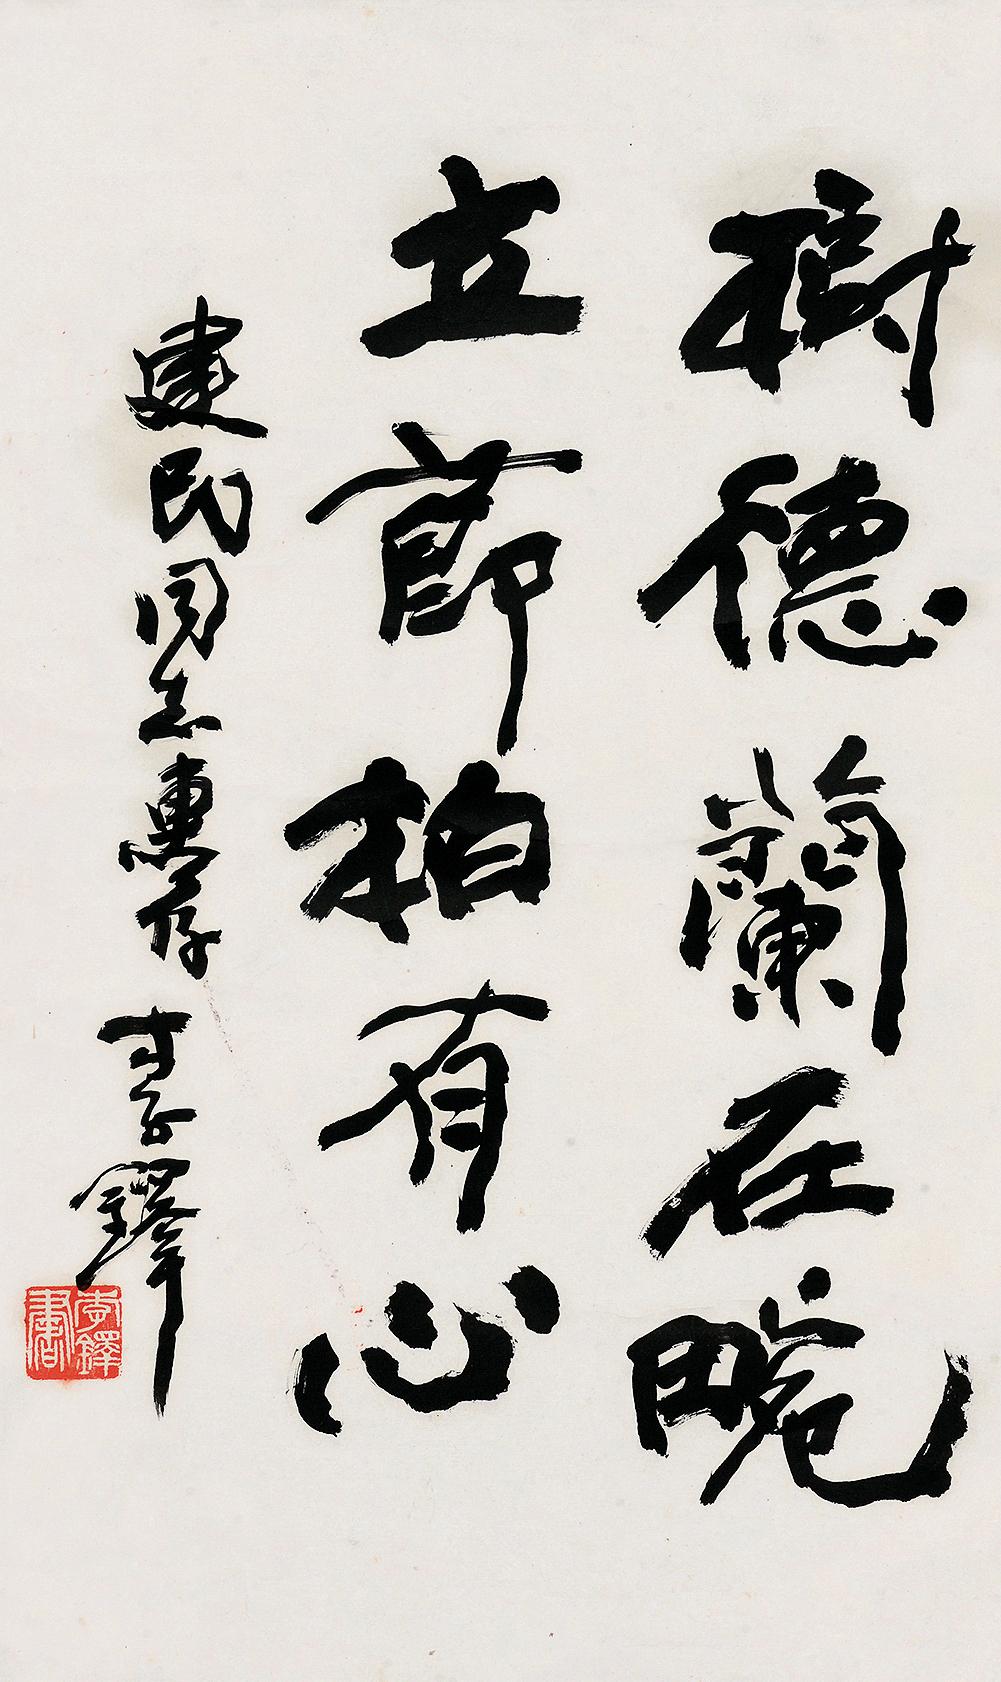 樹德蘭在畹
立節柏有心
建民同志惠存 李鐸
李鐸書